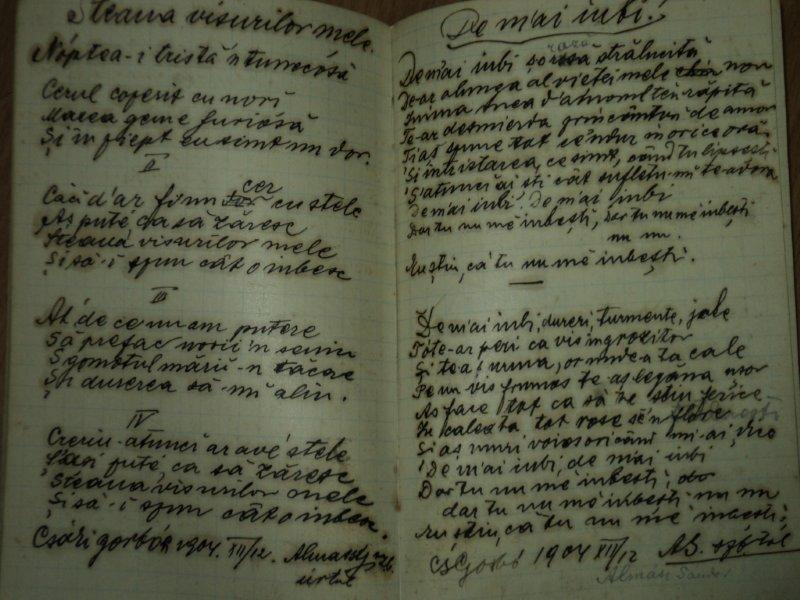 Steaua visurilor mele.
Nóptea-i tristă 'ntunecósă
Cerul coperit cu nori
Marea geme furiósă
Și în piept eu simt un dor.
II
Căci d'ar fi un cer cu stele
Aș puté, ca să zăresc
Steaua visurilor mele
Și să-i spun cât o iubesc
III
Ah! de ce nu am putere
Să prefac norii 'n senin
Sgomotul mării-n tăcere
Și durerea să-mi alin.
IV
Ceriu-atunci ar avé stele
puté, ca să zăresc
Steaua visurilor mele
Și să-i spun cât o iubesc.
Csáki gorbó 1904. XII/12. Almássy
De m'ai iubi!
De m'ai iubi o rază strălucită
De-ar alunga al vieței mele nor
Inima mea d'atuncĭ răpită
Te-ar desmierda prin cântur de amor
Ți-aș spune tot ce ândur în orice oră
Și intristarea, ce simt, când tu lipsești
S'atunci ai ști cât sufletu-mi te adoră
De m'ai iubi! De m'ai iubi
Dar tu nu mĕ iubești, dar tu nu mĕ iubești
nu nu.
Eu știu, că tu nu mĕ iubești.
De m'ai iubi, dureri, turmente, jale
Tóte-ar peri ca vis ingrozitor
Și tea
Pe un vis frumos te aș legăna ușor
Aș face tot ca să te știu ferice
In calea ta tot rose sĕ 'n
Și aș muri voios oricând mi-ai
De m'ai iubi, de m'ai iubi
Dar tu nu mĕ iubești,
dar tu nu mĕ iubești nu nu
Eu știu, că tu nu mĕ iubești;
CsGorbó 1904 XII/12
Almási Sándor